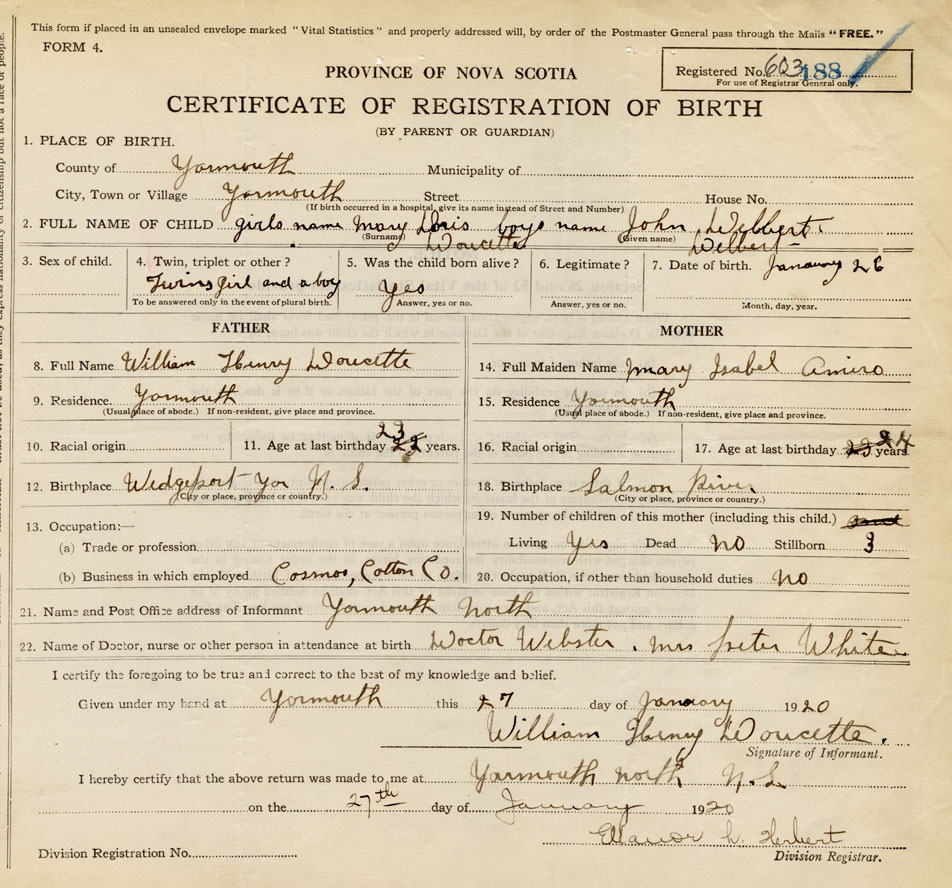 This form if placed in an unsealed envelope marked "Vital Statistics" and properly addressed will, by order of the Postmaster General pass through the Mails "FREE."
FORM 4.
Registered No. 603 188
For use of Registrar General only.
PROVINCE OF NOVA SCOTIA
CERTIFICATE OF REGISTRATION OF BIRTH
(BY PARENT OR GUARDIAN)
1. PLACE OF BIRTH.
County of Yarmouth Municipality of
City, Town or Village Yarmouth Street House No.
(If birth occurred in a hospital, give its name instead of Street and Number)
2. FULL NAME OF CHILD girls name Mary Doris boys name John Wilbert
(Surname) Doucette (Given name) Delbert
3. Sex of child. 4. Twin, triplet or other? 5. Was the child born alive? 6. Legitimate? 7. Date of birth. January 26
Twins girl and a boy Yes
To be answered only in the event of plural birth. Answer, yes or no. Answer, yes or no. Month, day, year.
FATHER MOTHER
8. Full Name William Henry Doucette 14. Full Maiden Name Mary Isabel Amiro
9. Residence. Yarmouth 15. Residence Yarmouth
(Usual place of abode.) If non-resident, give place and province. (Usual place of abode.) If non-resident, give place and province.
10. Racial origin 11. Age at last birthday 23 years. 16. Racial origin 17. Age at last birthday 24 years
12. Birthplace Wedgeport Yar N. S. 18. Birthplace Salmon River
(City or place, province or country.) (City or place, province or country.)
13. Occupation:— 19. Number of children of this mother (including this child.)
(a) Trade or profession Living Yes Dead no Stillborn 3
(b) Business in which employed Cosmos, Cotton Co. 20. Occupation, if other than household duties no
21. Name and Post Office address of Informant Yarmouth North
22. Name of Doctor, nurse or other person in attendance at birth Doctor Webster. Mrs Peter White
I certify the foregoing to be true and correct to the best of my knowledge and belief.
Given under my hand at Yarmouth this 27 day of January 1920
William Henry Doucette.
Signature of Informant.
I hereby certify that the above return was made to me at Yarmouth north N.S.
on the 27th day of January 1920
Ellanor L. Herbert
Division Registration No.
Division Registrar.